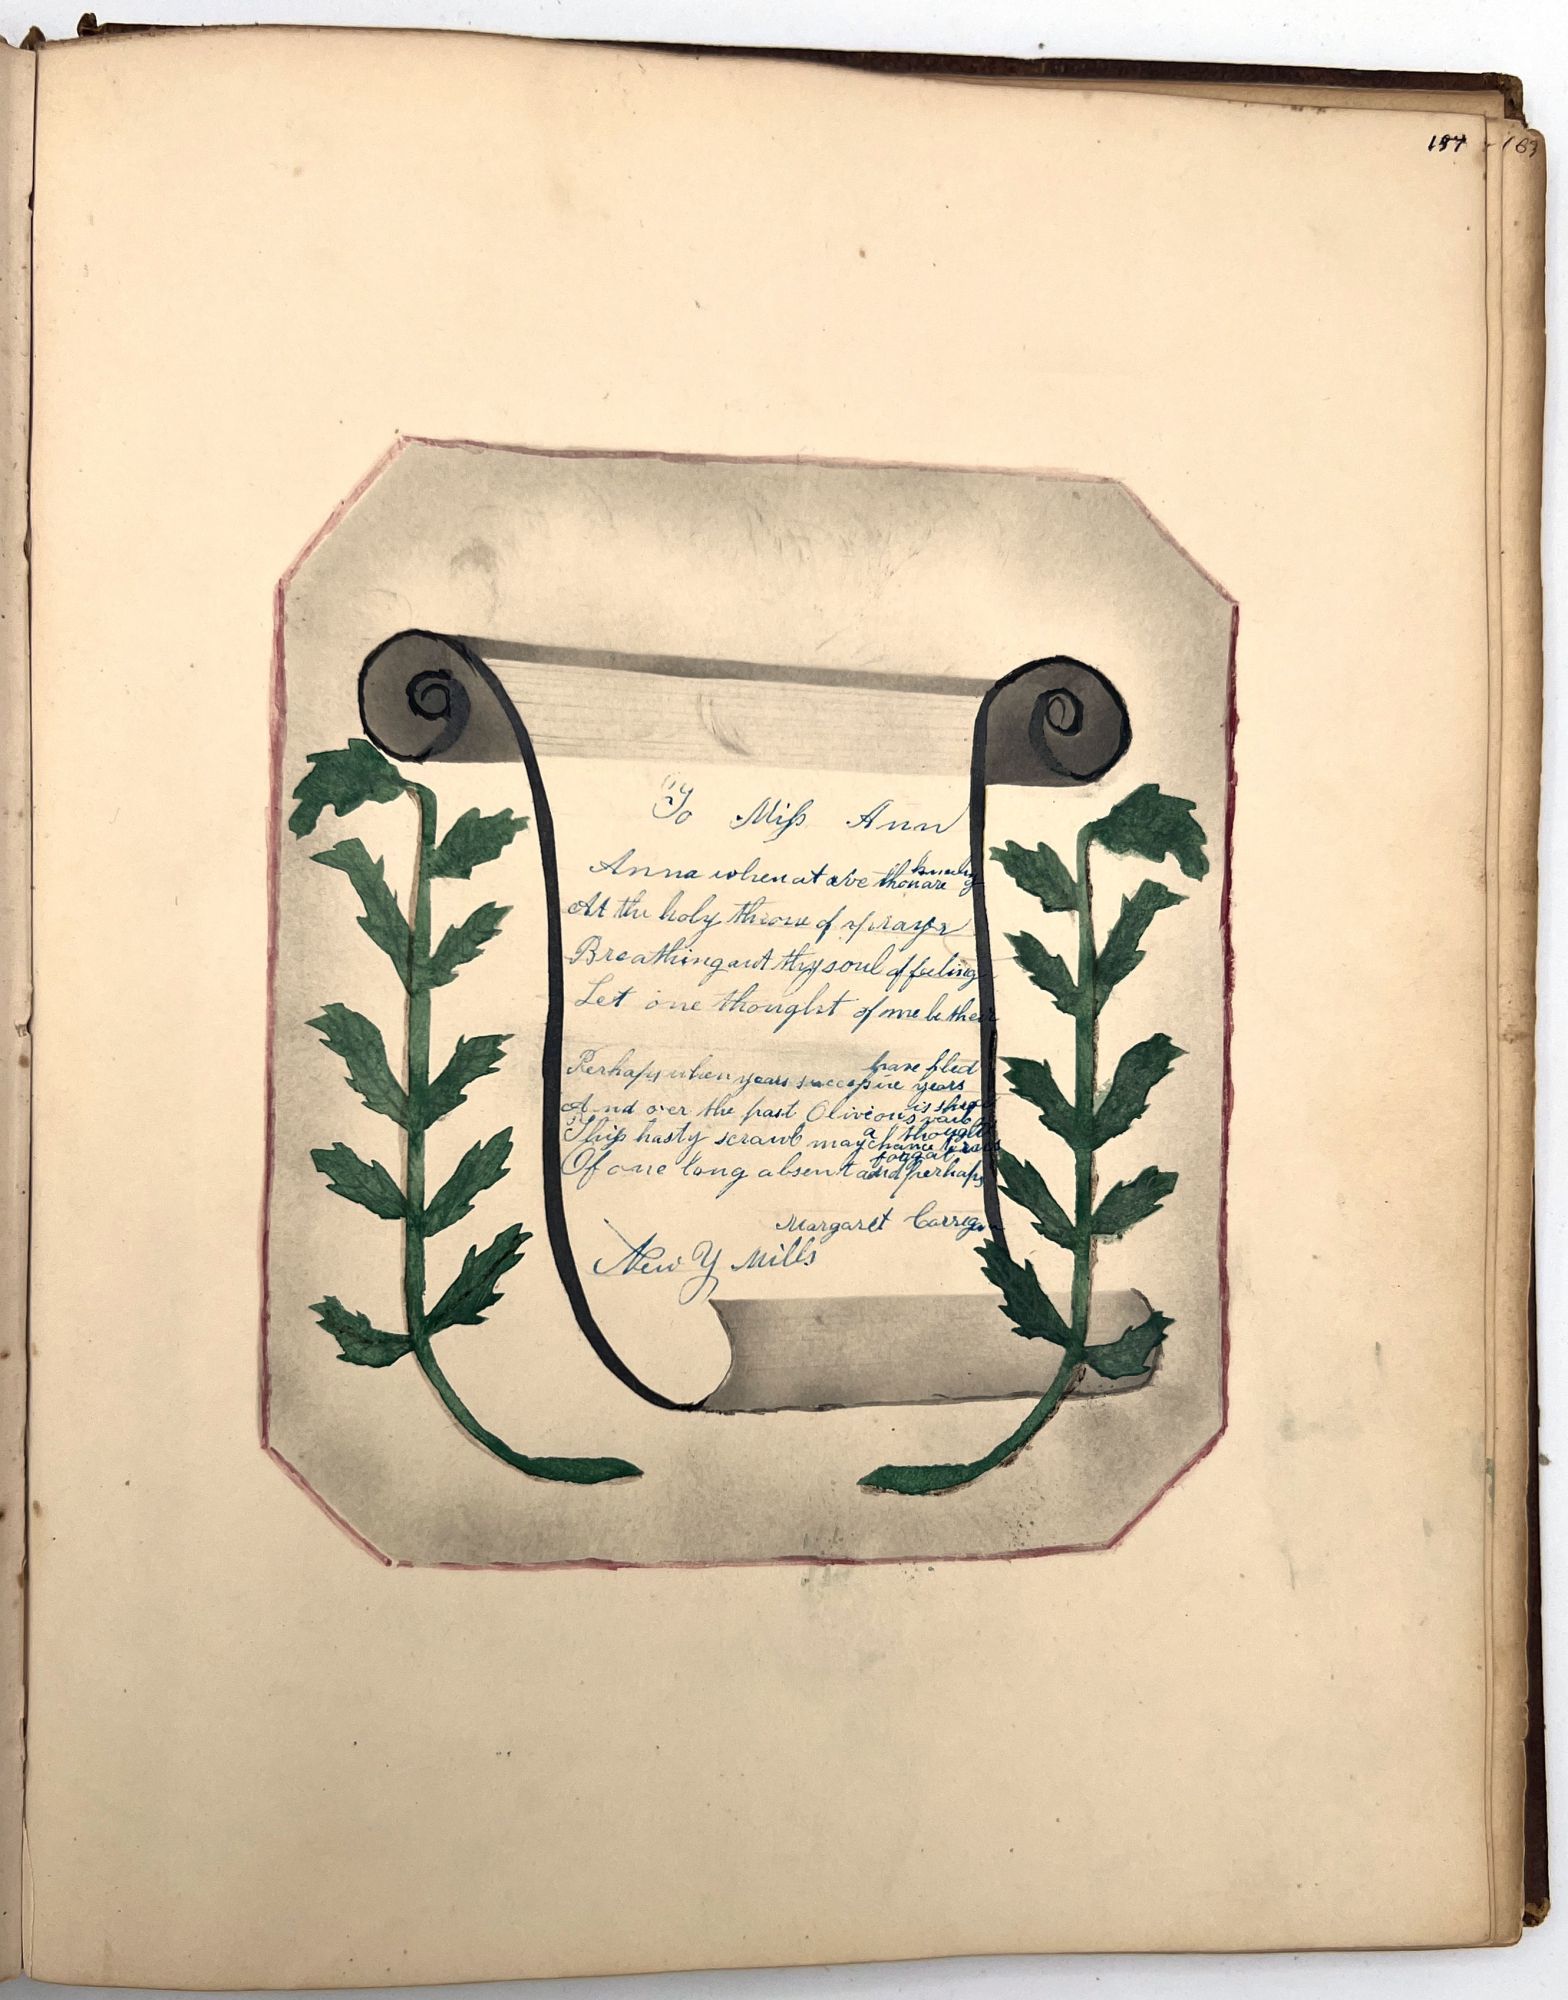 157 163
To Miss Ann
Anna when at eve thou are kneeling
At the holy throne of prayr
Breathing out thy soul of feeling
Let one thought of me be their
Perhaps when years succesive years have fled
And over the past Olivious vail is shed
This hasty scrawl may chance a thought
Of one long absent and perhaps forgot
Margaret
New Y Mills